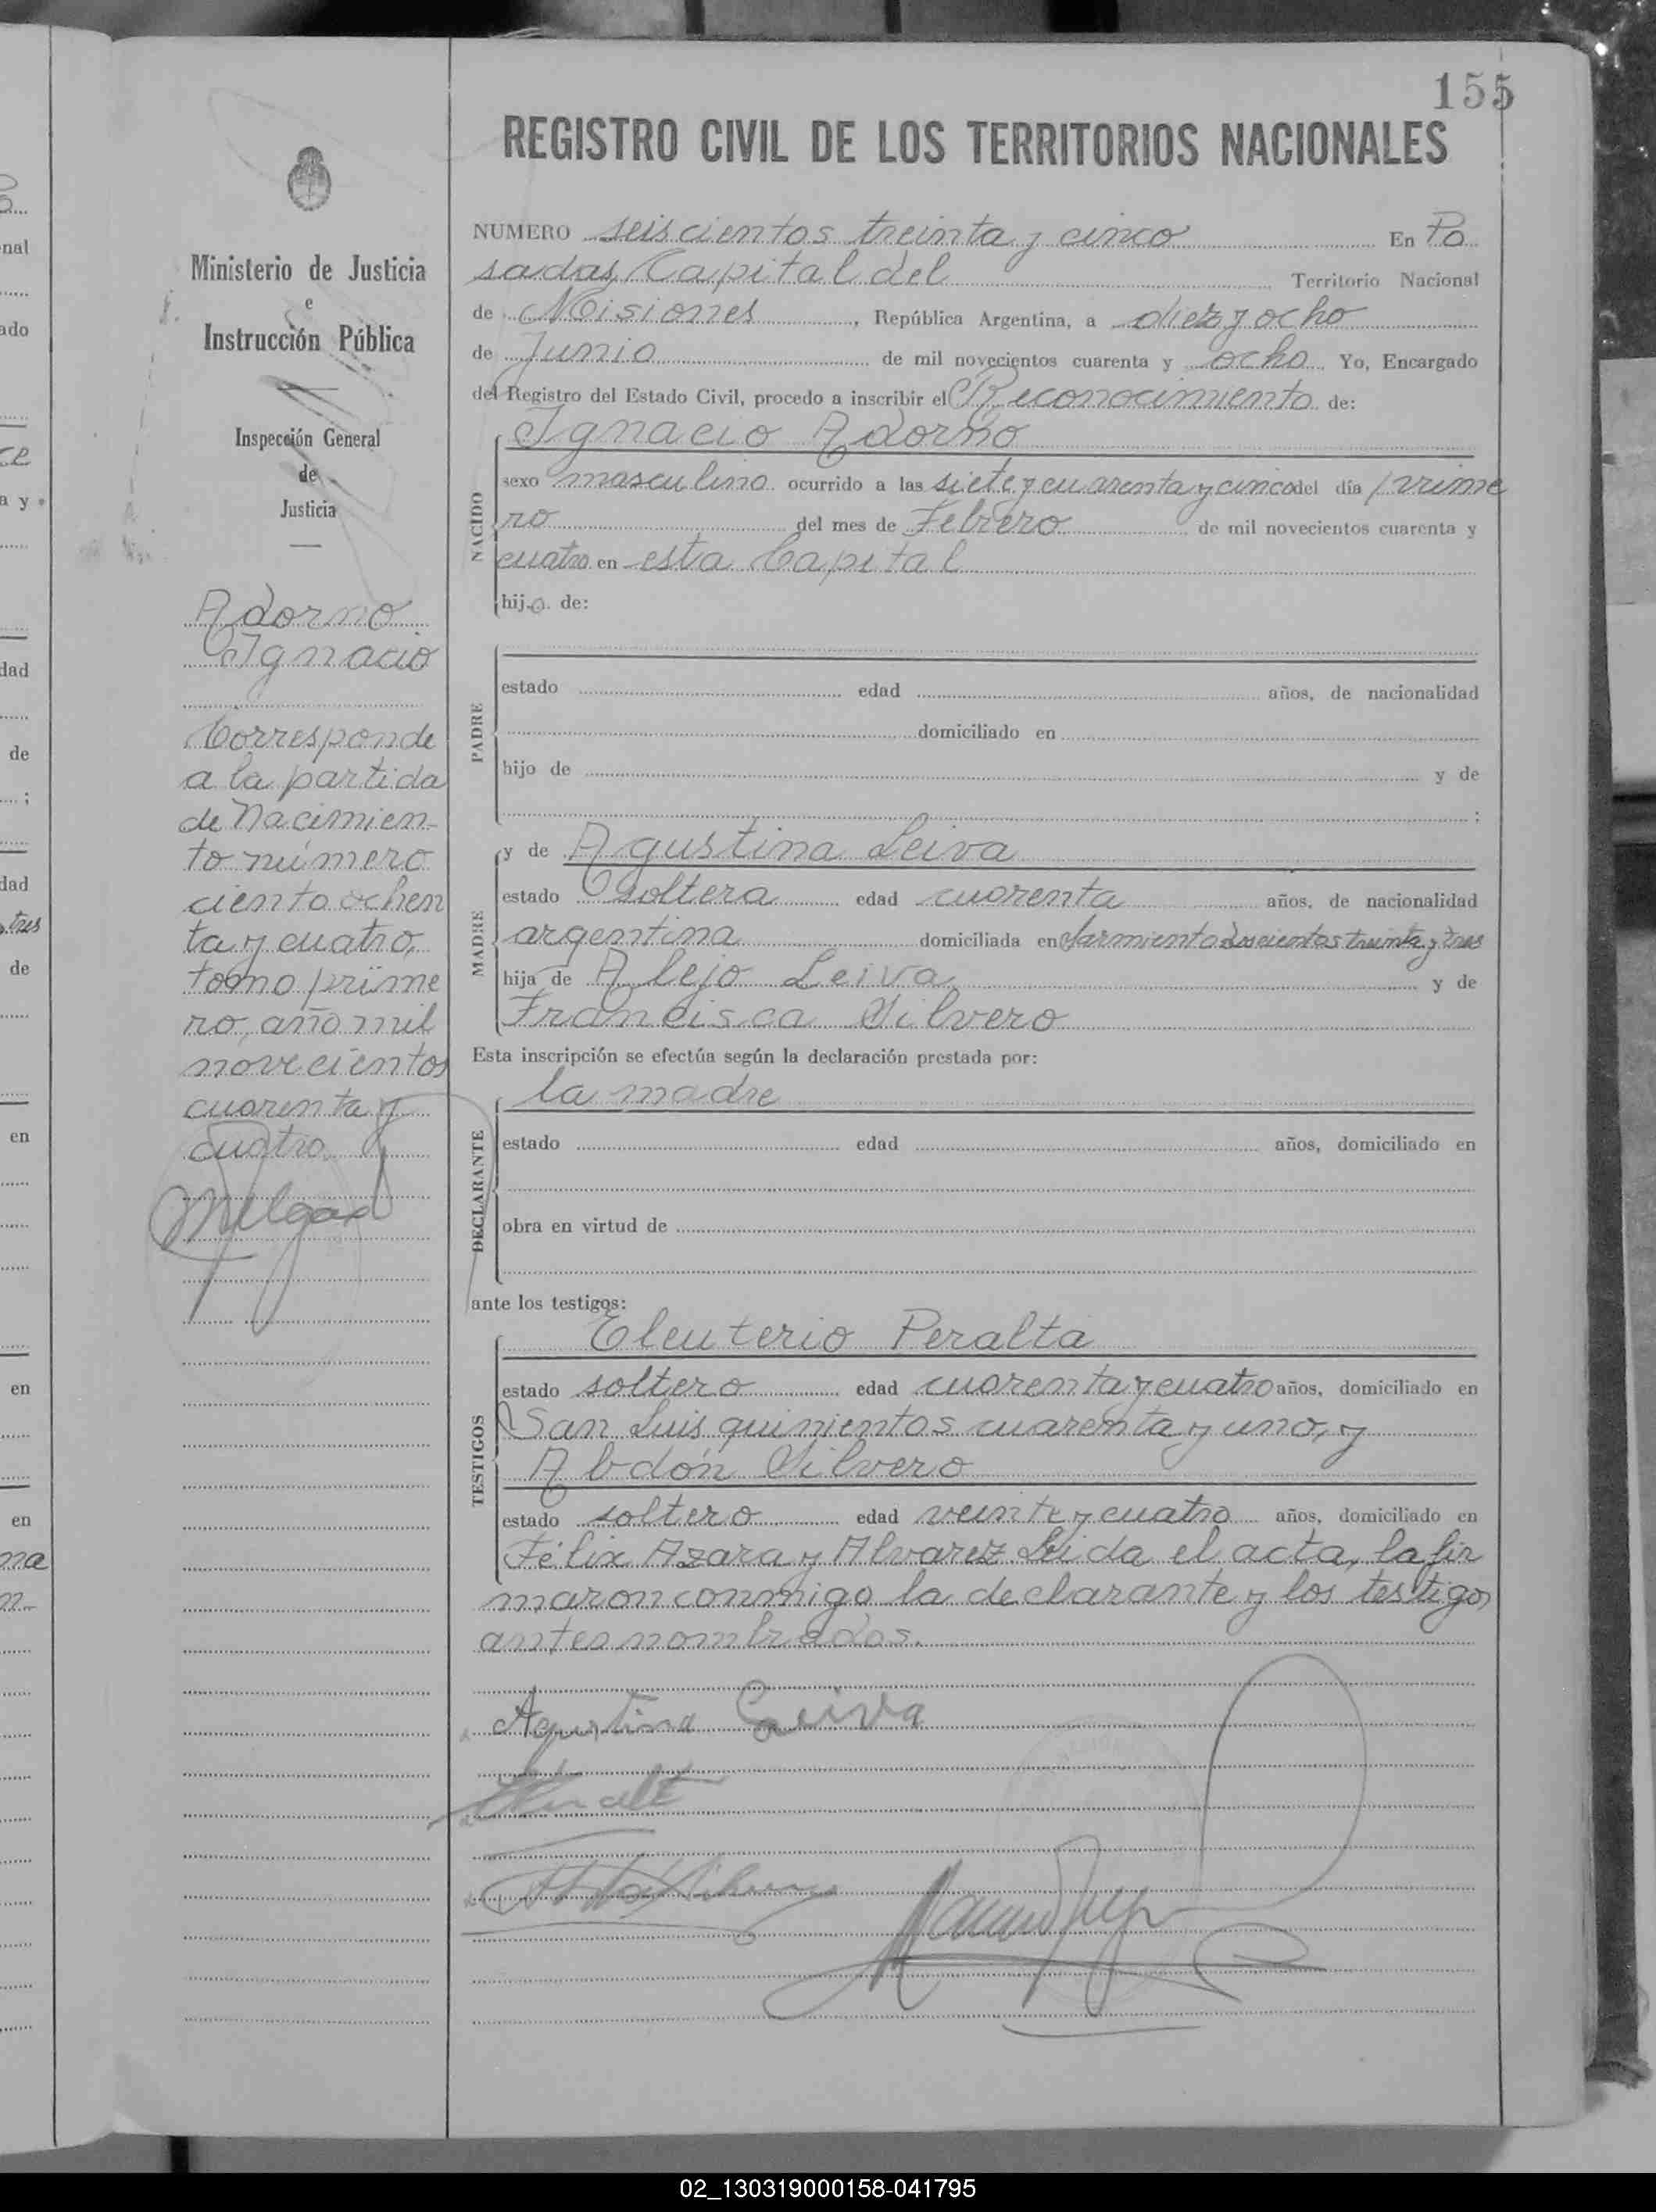 155
REGISTRO CIVIL DE LOS TERRITORIOS NACIONALES
Ministerio de Justicia
e
Instrucción Pública
Inspección General
de
Justicia
Adorno
Ignacio
Corresponde
a la partida
de Nacimien-
to número
ciento ochen
ta y cuatro,
tomo prime
ro, año mil
novecientos
cuarenta y
cuatro.
NUMERO seiscientos treinta y cinco En Po
sadas, Capital del Territorio Nacional
de Misiones, República Argentina, a diez y ocho
de Junio de mil novecientos cuarenta y ocho Yo, Encargado
del Registro del Estado Civil, procedo a inscribir el Reconocimiento de:
NACIDO
Ignacio Adorno
sexo masculino ocurrido a las siete y cuarenta y cinco del día prime
ro del mes de Febrero de mil novecientos cuarenta y
cuatro en esta Capital
hijo de:
PADRE
estado edad años, de nacionalidad
domiciliado en
hijo de y de
;
MADRE
y de Agustina Leiva
estado soltera edad cuarenta años, de nacionalidad
argentina domiciliada en Sarmiento doscientos treinta y tres
hija de Alejo Leiva y de
Francisca Silvero
Esta inscripción se efectúa según la declaración prestada por:
DECLARANTE
la madre
estado edad años, domiciliado en
obra en virtud de
ante los testigos:
TESTIGOS
Eleuterio Peralta
estado soltero edad cuarenta y cuatro años, domiciliado en
San Luis quinientos cuarenta y uno, y
Abdón Silvero
estado soltero edad veinte y cuatro años, domiciliado en
Félix Azara y Alvarez Leida el acta, la fir
maron conmigo la declarante y los testigos
antes nombrados.
Agustina Leiva
02_130319000158-041795